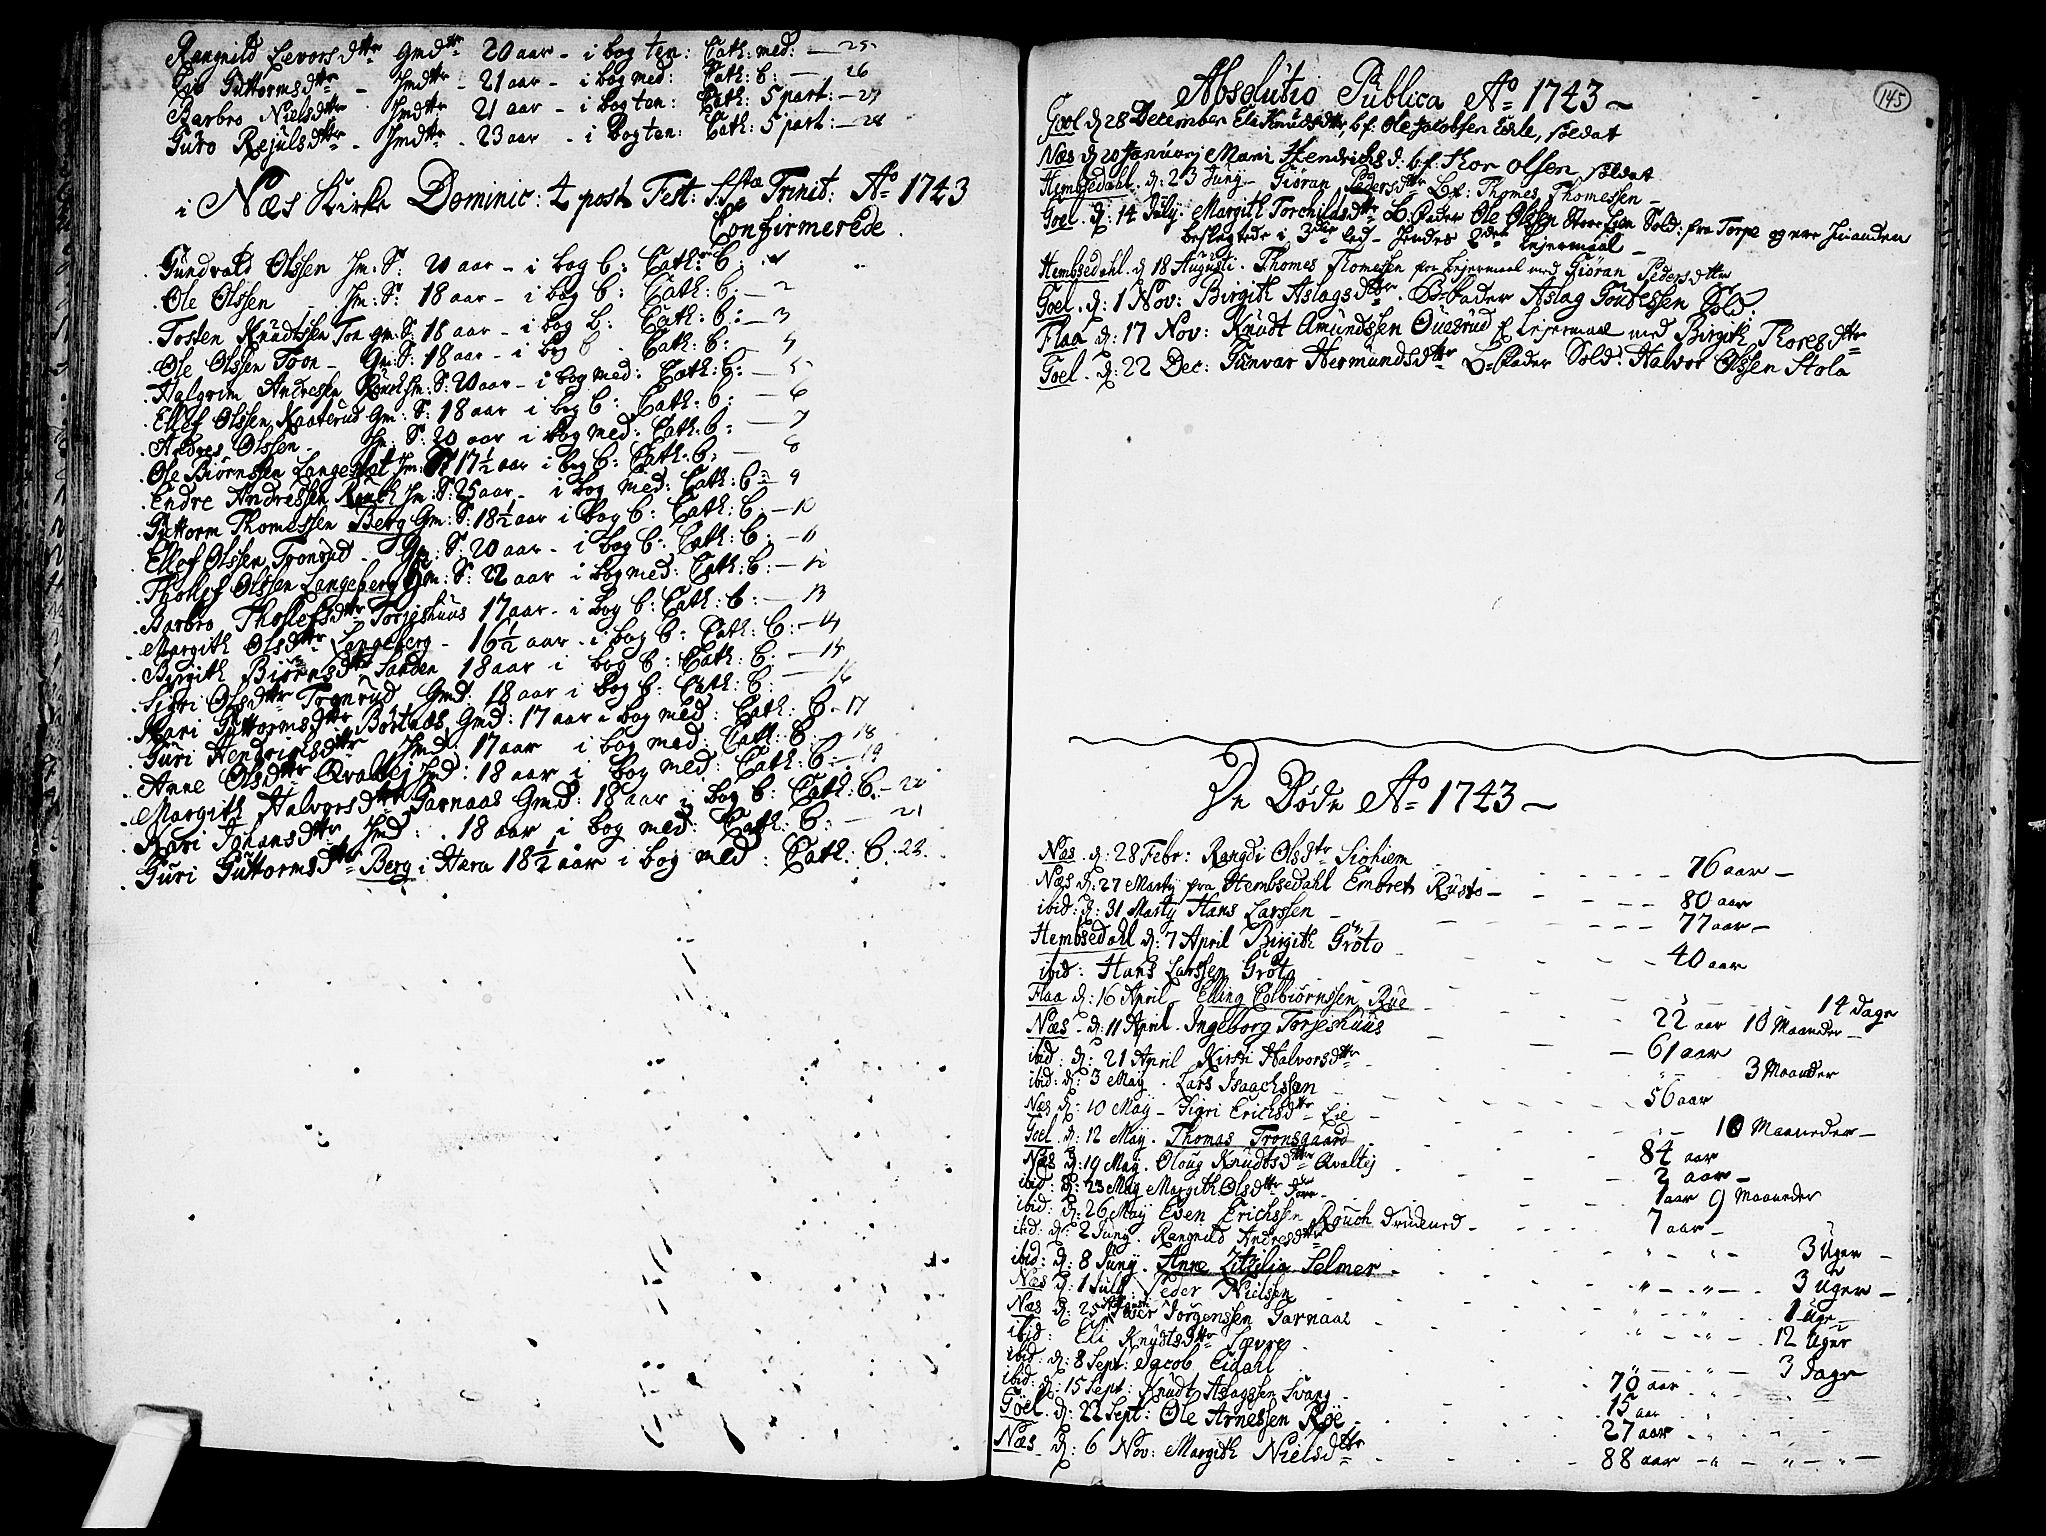 Rangnild Lievorsdttr Gmdttr 20 aar - i bog ten: Cath: med: - 25
Liv Guttormsdttr - Jmdttr - 21 aar - i bog med: Cath: C: - 26
Barbro Nielsdttr Jmdttr 21 aar - i bog ten: Cath: 5 part: - 27
Guro Rejulsdttr - Jmdttr - 23 aar - i bog ten: Cath: 5 part: - 28
i Næs Kirke Dominic: 4 post Fest: S:Stæ Trinit: Ao 1743
Confirmerede.
Gundvald Olssen Jm: S: 20 aar - i bog C: Cath: C: 1
Ole Olssen - Jm: S: 18 aar - i bog C: Cath: C: - 2
Tosten Knudtssen Ton Gm: S: 18 aar - i bog C: Cath: C: - 3
Ole Olssen Toon - Gm: S: 18 aar - i bog C Cath: C: 4
Halgrim Andresen Rouch Jm: S: 20 aar - i bog med: Cath: C: - 5
Ellef Olssen Kaaterud Gm: S: 18 aar i bog C: Cath: C: - 6
Andres Olssen - Jm: S: 20 aar i bog med: Cath: C: - 7
Ole Biörnssen Langeslet Jm: S: 17½ aar i bog C: Cath: C: - 8
Endre Andressen Rouch Jm: S: 25 aar - i bog med: Cath: C: - 9
Guttorm Thomessen Berg Gm: S: 18½ aar i bog C: Cath: C: - 10
Ellef Olssen Tronrud - Gm: S: 20 aar - i bog C: Cath: C: - 11
Thollef Olssen Langeberg Gm: S: 22 aar i bog med: Cath: C: - 12
Barbro Thoslefsdttr Torjeshuus 17 aar - i bog C: Cath: C: - 13
Margith Olsdttr Langeberg - 16½ aar - i bog C: Cath: C: - 14
Birgith Biörnsdttr Sanden 18 aar i bog C: Cath: C: - 15
Sigri Olsdttr Tronrud Gmd: 18 aar i bog C: Cath: C: - 16
Kari Guttormsdttr Börtnæs Gmd: 17 aar i bog med: Cath: C - 17
Guri Hendrichsdttr Jmd: 17 aar i bog med: Cath: C: - 18
Anne Olsdttr Qvaltej Jmd: 18 aar i bog med: Cath: C: - 19
Margith Halvorsdttr Garnaas Gmd: 18 aar i bog C: Cath: C: - 20
Kari Johansdttr Jmd: 18 aar i bog med: Cath: C: - 21
Guri Guttormsdttr Berg i Aara 18½ aar i bog med: Cath: C. 22.
145
Absolutio Publica Ao 1743 -
Gool d: 28 December Eli Knudsdttr, bf: Ole Jacobsen Eckle, soldat
Næs d: 20 Januarj Mari Hendrichsd. bf: Thor olsen, soldat
Hembsedahl d: 23 Junÿ - Giöran Pedersdttr Bf: Thomes Thomessen -
Goel d: 14 Julÿ. Margith Torchildsdttr B: Fader Ole Olssen Sold: fra Torpe og ere hinanden
beslegtede i 3die led - Hendes 2den Lejermaal -
Hembsedahl d: 18 Augusti - Thomes Thomessen for lejermaal med Giöran Pedersdttr
Goel d: 1 Nov: Birgith Aslagsdttr. B: Fader Aslag Goutessen Sol:
Flaa d: 17 Nov: Knudt Amundssen Ouesrud f Lejermaal med Birgith Thoresdttr
Goel. d: 22 Dec: Gunvor Hermundsdttr B: Fader Sold: Halvor Olssen Stola
De Döde Ao 1743 -
Næs. d: 28 Febr: Rangdi Olsdtr Siöhiem - 76 aar -
Næs d: 27 Martÿ fra Hembsedahl Embret Rusto - 80 aar
ibid: d: 31 Martÿ Hans Larssen - 77 aar -
Hembsedahl d: 7 April Birgith Gröto - 40 aar
ibid: Hans Larssen Gröto - 14 dage
Flaa d: 16 April Elling Colbiörnssen Rue - 22 aar 10 Maaneder -
Næs - d: 11 April. Ingeborg Torjeshuus - 61 aar
ibid: d: 21 April Kirsti Halvorsdttr - 3 Maaneder
ibid: d: 3 Maÿ. Lars Isaachssen - 56 aar
Næs d: 10 Maÿ - Sigri Erichsdttr Eie - 10 Maaneder -
Goel d: 12 Maÿ. Thomas Tronsgaard - 84 aar
Næs d: 19 Maÿ. Oloug Knudtsdttr Qvaltej - 2 aar -
ibid: d: 23 Maÿ Margith Olsdttr - 1 aar 9 Maaneder
ibid: d: 26 Maÿ Even Erichssen Rouch drukned - 7 aar -
ibid: d: 2 Junÿ. Rangnild Andresdttr - 3 Uger -
ibid: d: 8 Junÿ. Anne Zitzilia Selmer - 3 Uger -
Næs d: 1 Julÿ Peder Nielsen - 1 Uge -
Næs d: 25 Peder Jörgenssen Garnaas - 12 Uger
ibid: Eli Knudtsdttr Sævre - 3 Dage
ibid: d: 8 Sept: Jacob Eidahl - 70 aar
ibid: d: 15 Sept: Knudt Aslagssen Svang - 15 aar
Goel. d: 22 Sept: Ole Arnessen Röe - 27 aar
Næs - d: 6 Nov: Margith Nielsdttr - 88 aar